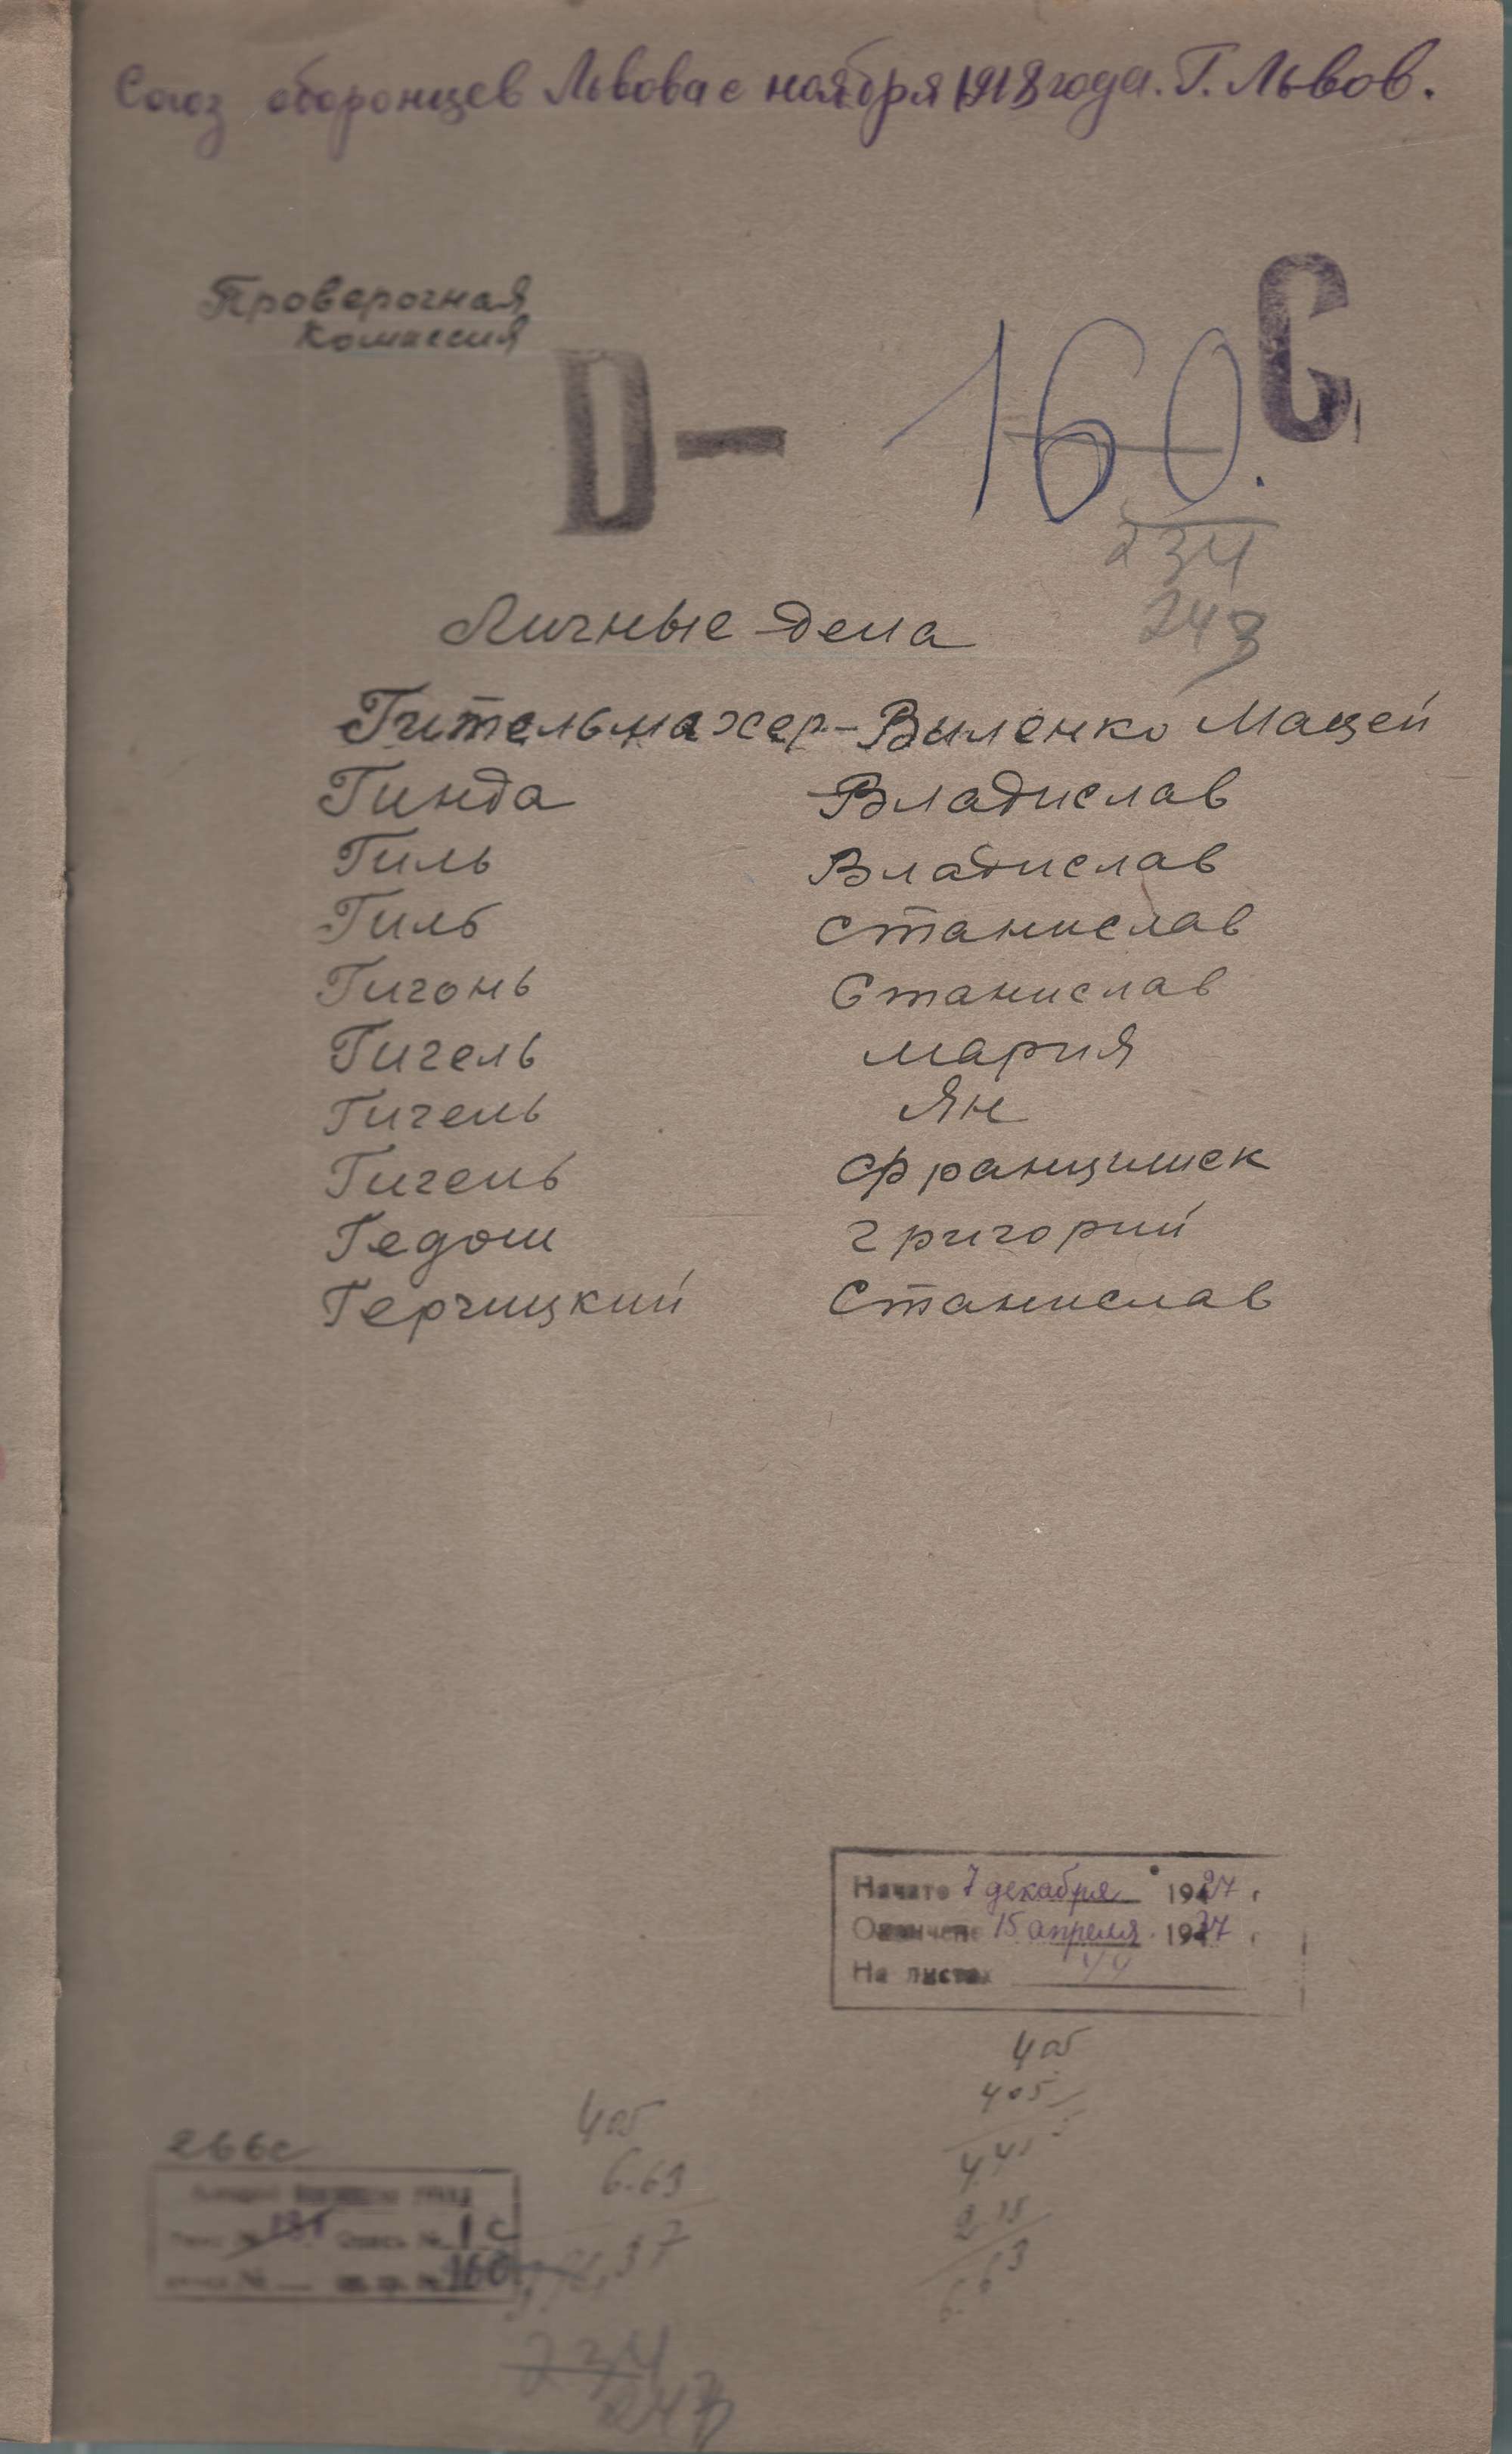 Союз оборонцев Львова с ноября 1918 года. Г. Львов.
Проверочная
Комиссия
D — 160. С
234
243
Личные дела
Гительмахер-Виленко Мацей
Гинда Владислав
Гиль Владислав
Гиль Станислав
Гигонь Станислав
Гигель Мария
Гигель Ян
Гигель Францишек
Гедош Григорий
Герчицкий Станислав
Начато 7 декабря 1927 г
Окончено 15 апреля 1937 г
На листах
405
405
405
6.63
37
266с
Опись № 1 С
160
234
243